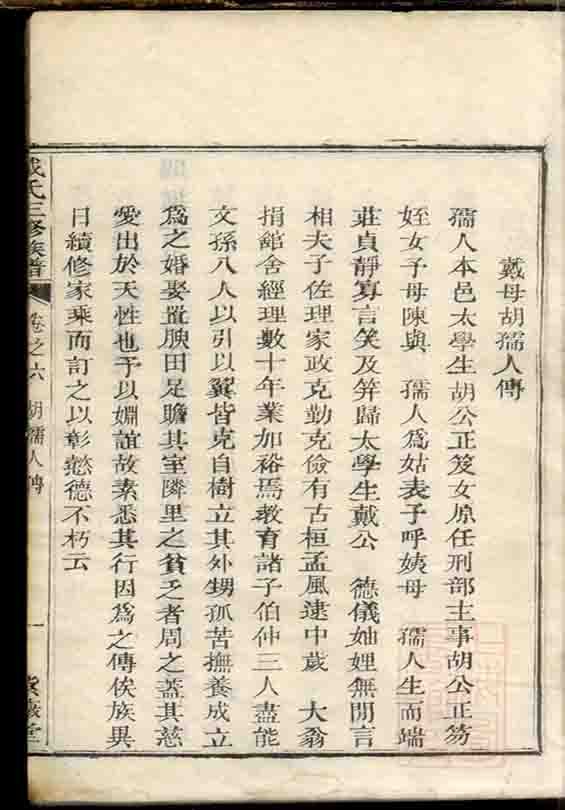 戴母胡孺人傳
孺人本邑太學生胡公正笈女原任刑部主事胡公正笏
姪女子母陳與 孺人為姑表子呼姨母 孺人生而端
莊貞靜寡言笑及筓歸太學生戴公 德儀妯娌無閒言
相夫子佐理家政克勤克儉有古桓孟風逮中歲 大翁
捐館舍經理數十年業加裕焉教育諸子伯仲三人盡能
文孫八人以引以翼皆克自樹立其外甥孤苦撫養成立
為之婚娶置腴田足贍其室隣里之貧乏者周之蓋其慈
愛出於天性也予以婣誼故素悉其行因為之傳俟族異
日續修家乘而訂之以彰懿德不朽云
戴氏三修族譜 卷之六 胡孺人傳 一 堂